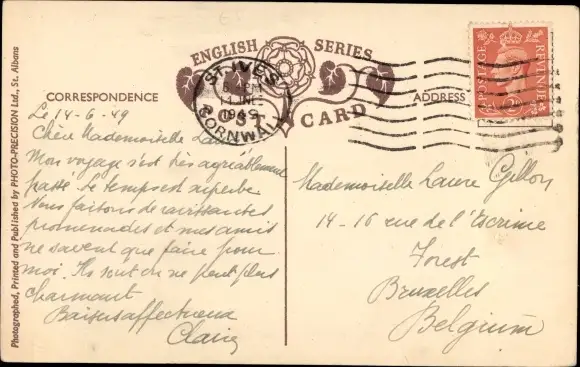 Photographed, Printed and Published by PHOTO-PRECISION Ltd., St. Albans
ENGLISH SERIES
POST CARD
CORRESPONDENCE
ADDRESS
ST IVES
CORNWALL
14 JNE
1949
POSTAGE
REVENUE
Le 14-6-49
Chère Mademoiselle Laure
Mon voyage s'est très agréablement
passé. Le temps est superbe.
Nous faisons de ravissantes
promenades et mes amis
ne savent que faire pour
moi. Ils sont on ne peut plus
charmant
Baisers affectueux
Claire
Mademoiselle Laure Gillon
14-16 rue de l'Escrime
Forest
Bruxelles
Belgium